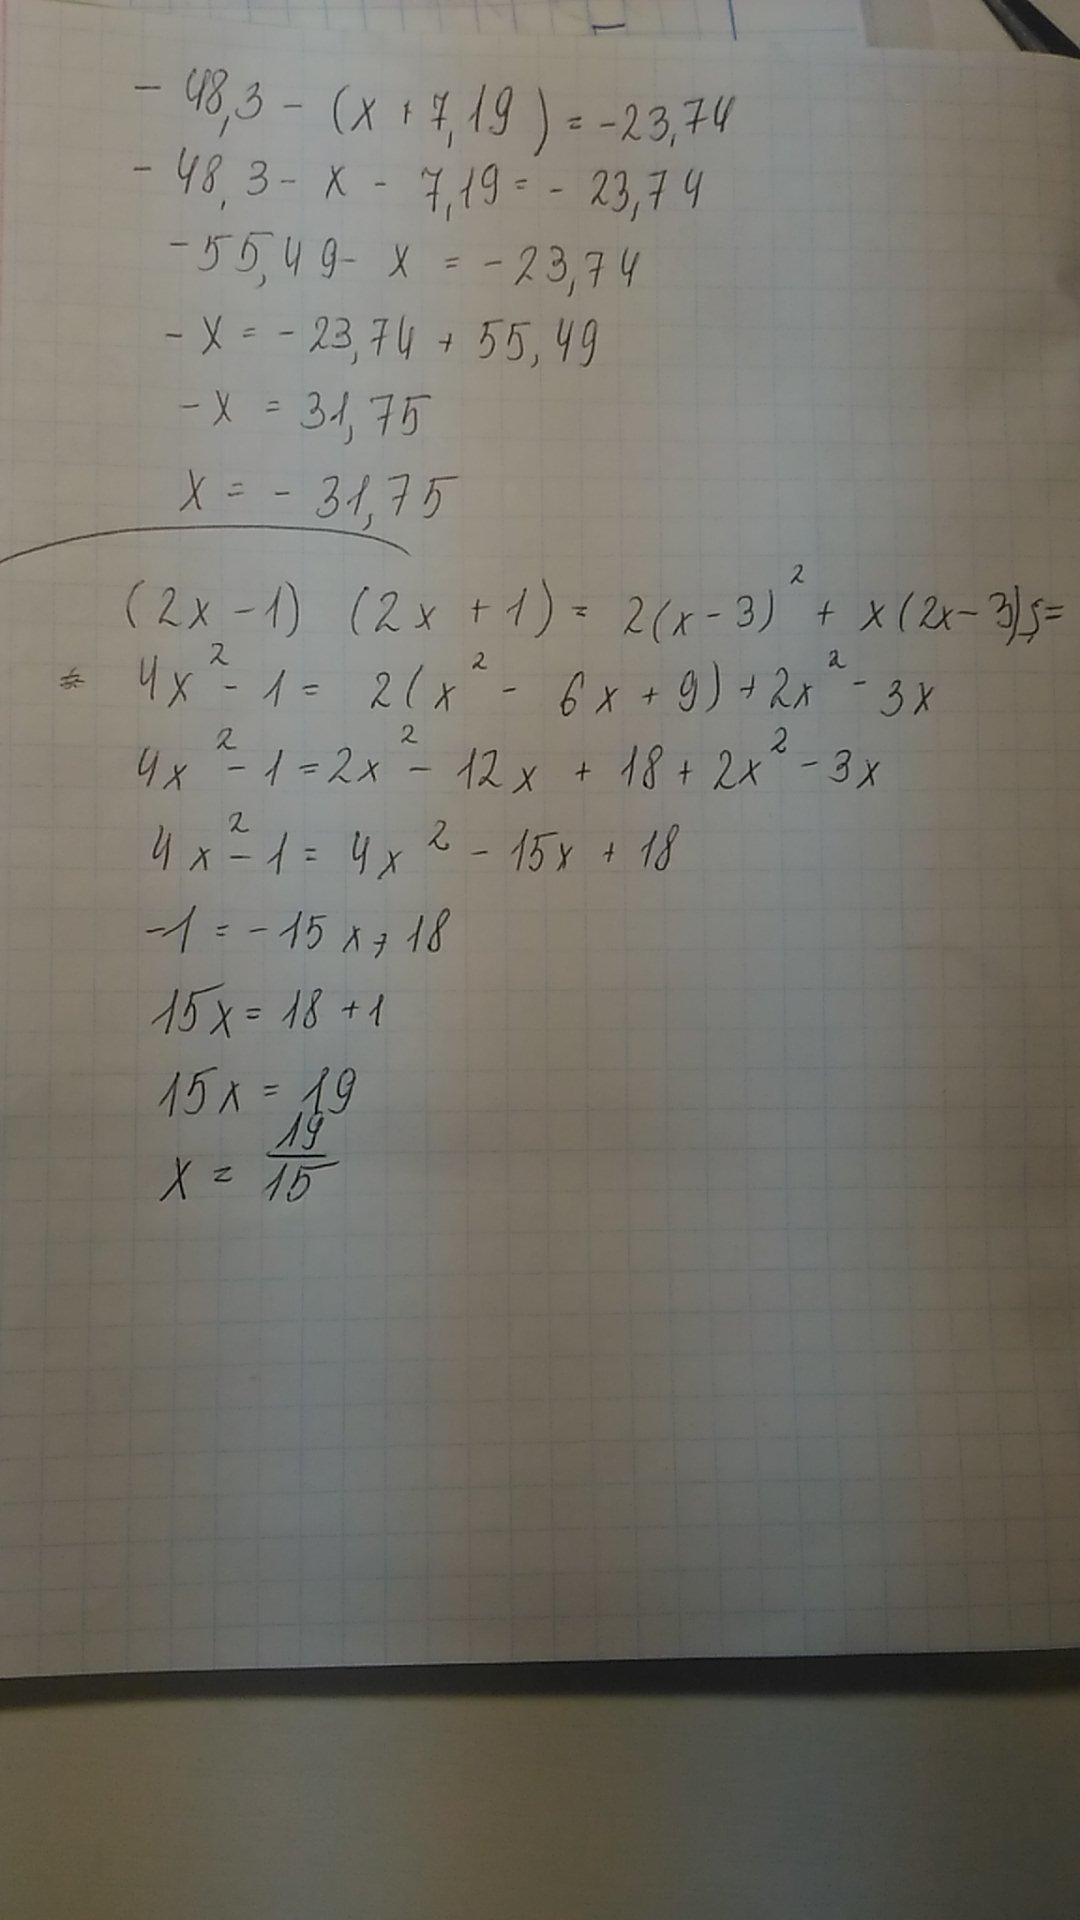 - 48,3 - (x + 7,19) = -23,74
- 48,3 - x - 7,19 = - 23,74
-55,49 - x = -23,74
- x = - 23,74 + 55,49
- x = 31,75
x = - 31,75
(2x - 1) (2x + 1) = 2(x - 3)² + x(2x - 3) =
4x² - 1 = 2(x² - 6x + 9) + 2x² - 3x
4x² - 1 = 2x² - 12x + 18 + 2x² - 3x
4x² - 1 = 4x² - 15x + 18
-1 = -15x + 18
15x = 18 + 1
15x = 19
x = 19/15